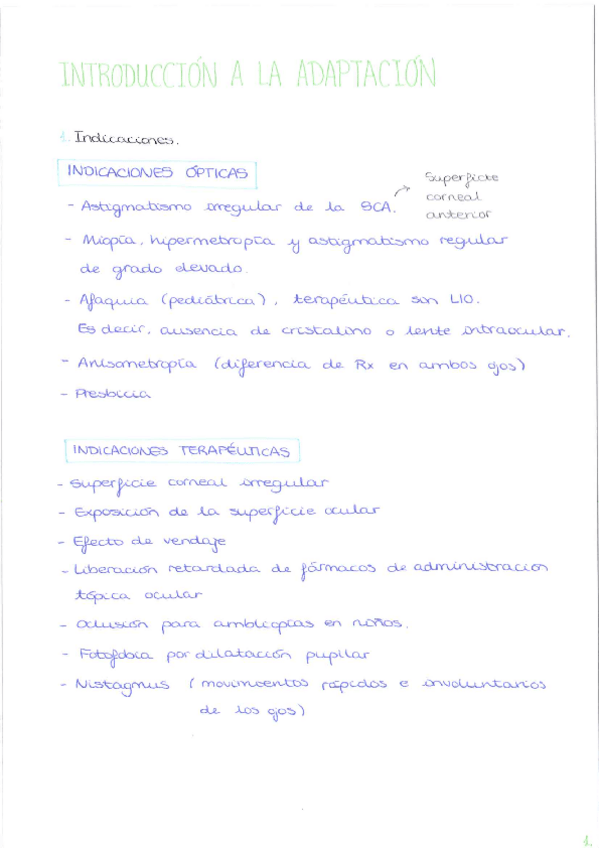 INTRODUCCIÓN A LA ADAPTACIÓN
1. Indicaciones.
INDICACIONES ÓPTICAS
- Astigmatismo irregular de la SCA.
Superficie
corneal
anterior
- Miopía, hipermetropía y astigmatismo regular
de grado elevado.
- Afaquia (pediátrica), terapéutica son LIO.
Es decir, ausencia de cristalino o lente intraocular.
- Anisometropía (diferencia de Rx en ambos ojos)
- Presbicia
INDICACIONES TERAPÉUTICAS
- Superficie corneal irregular
- Exposición de la superficie ocular
- Efecto de vendaje
- Liberación retardada de fármacos de administración
tópica ocular
- Oclusión para ambliopías en niños.
- Fotofobia por dilatación pupilar
- Nistagmus (movimientos rápidos e involuntarios
de los ojos)
1.